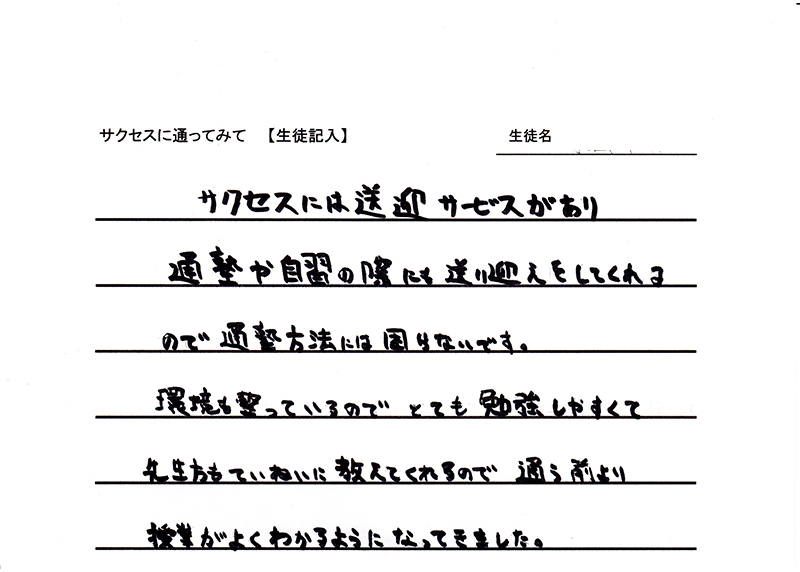 サクセスに通ってみて 【生徒記入】 生徒名
サクセスには送迎サービスがあり
通塾や自習の際にも送り迎えをしてくれる
ので通塾方法には困りないです。
環境も整っているのでとても勉強しやすくて
先生方もていねいに教えてくれるので 通う前より
授業がよくわかるようになってきました。